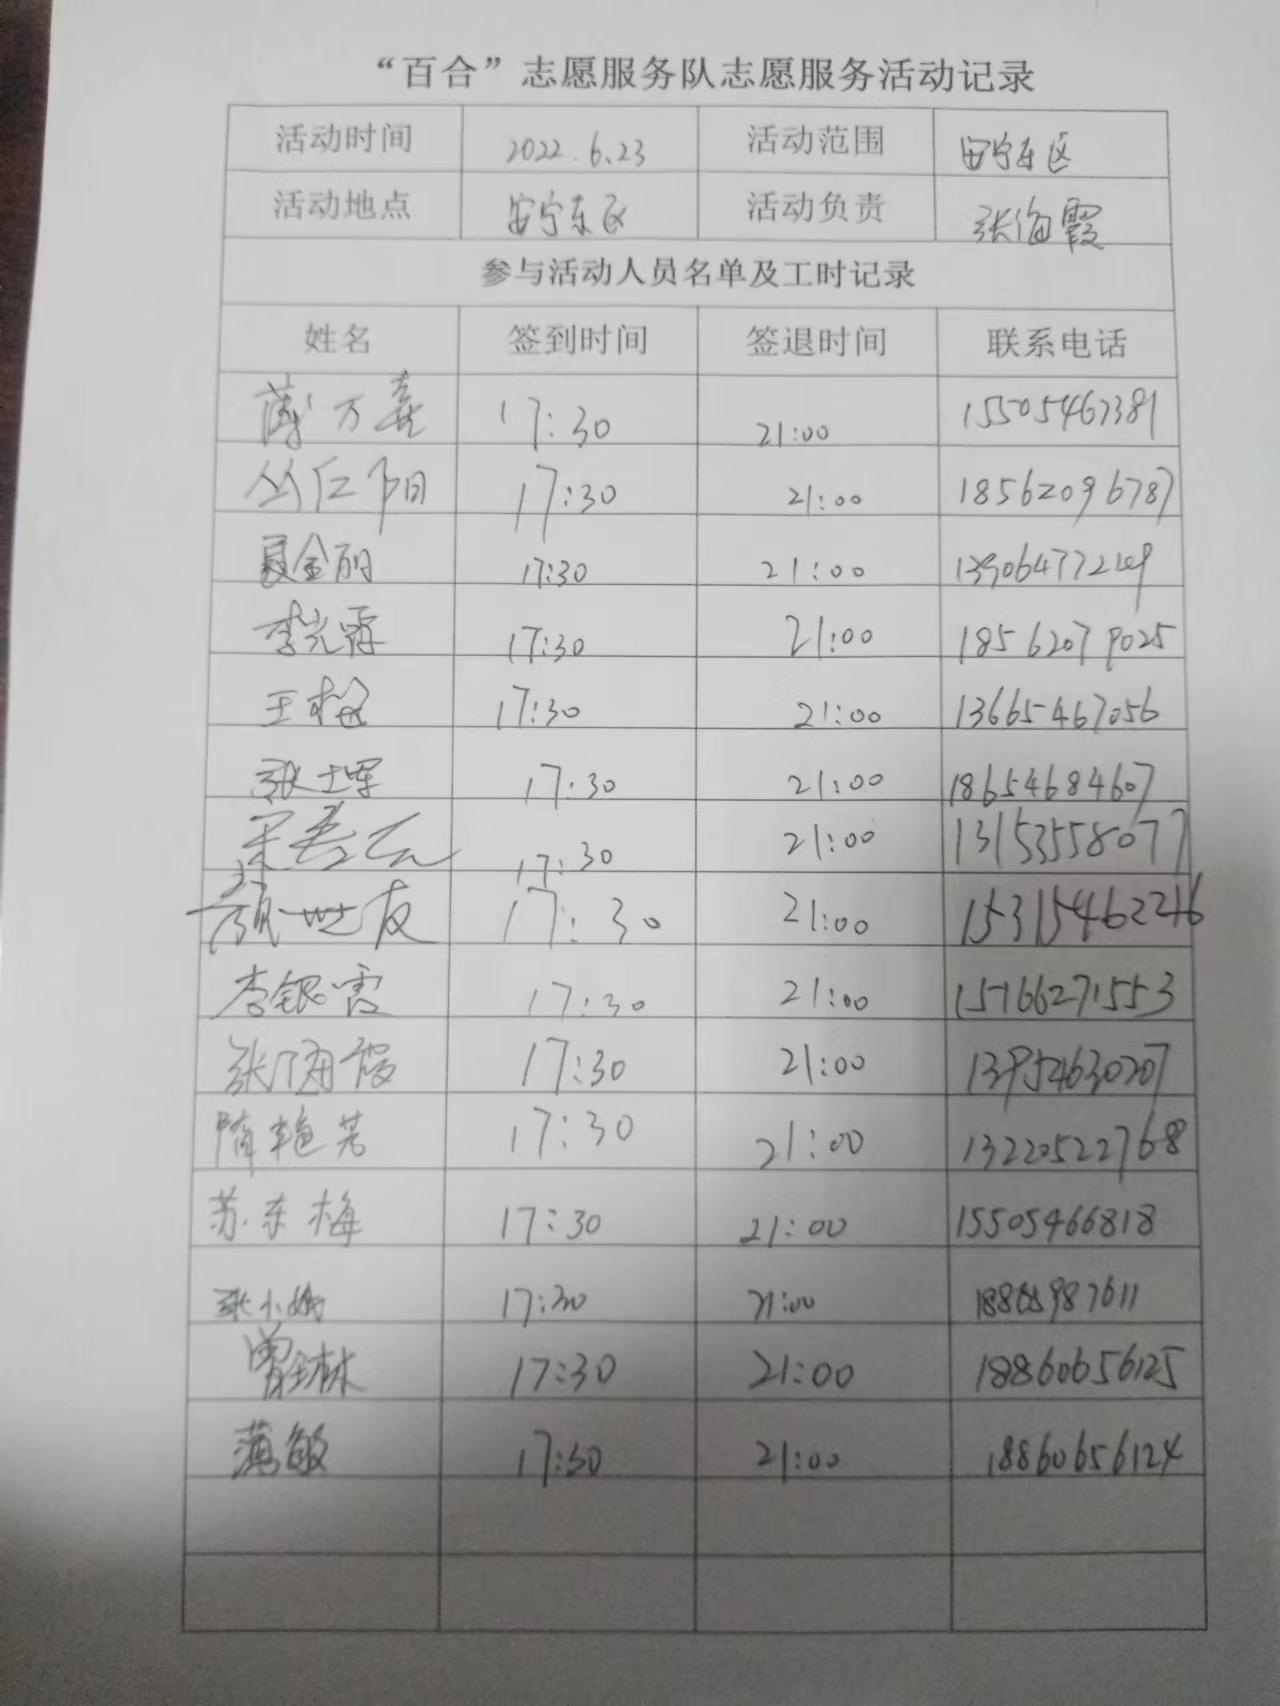 “百合”志愿服务队志愿服务活动记录
活动时间 2022.6.23 活动范围 安宁东区
活动地点 安宁东区 活动负责 张海霞
参与活动人员名单及工时记录
姓名 签到时间 签退时间 联系电话
薄万嘉 17:30 21:00 15505467381
丛仁阳 17:30 21:00 18562096787
聂金丽 17:30 21:00
李光霞 17:30 21:00 18562079025
王梅 17:30 21:00 13665467056
张士军 17:30 21:00 18654684607
宋 17:30 21:00 13153558077
颜世友 17:30 21:00
李银霞 17:30 21:00 15766271553
张海霞 17:30 21:00 13954630207
隋艳芳 17:30 21:00 13220522768
苏东梅 17:30 21:00 15505466818
张小娥 17:30 21:00
曾全林 17:30 21:00 18860656125
薄敏 17:30 21:00 18860656124